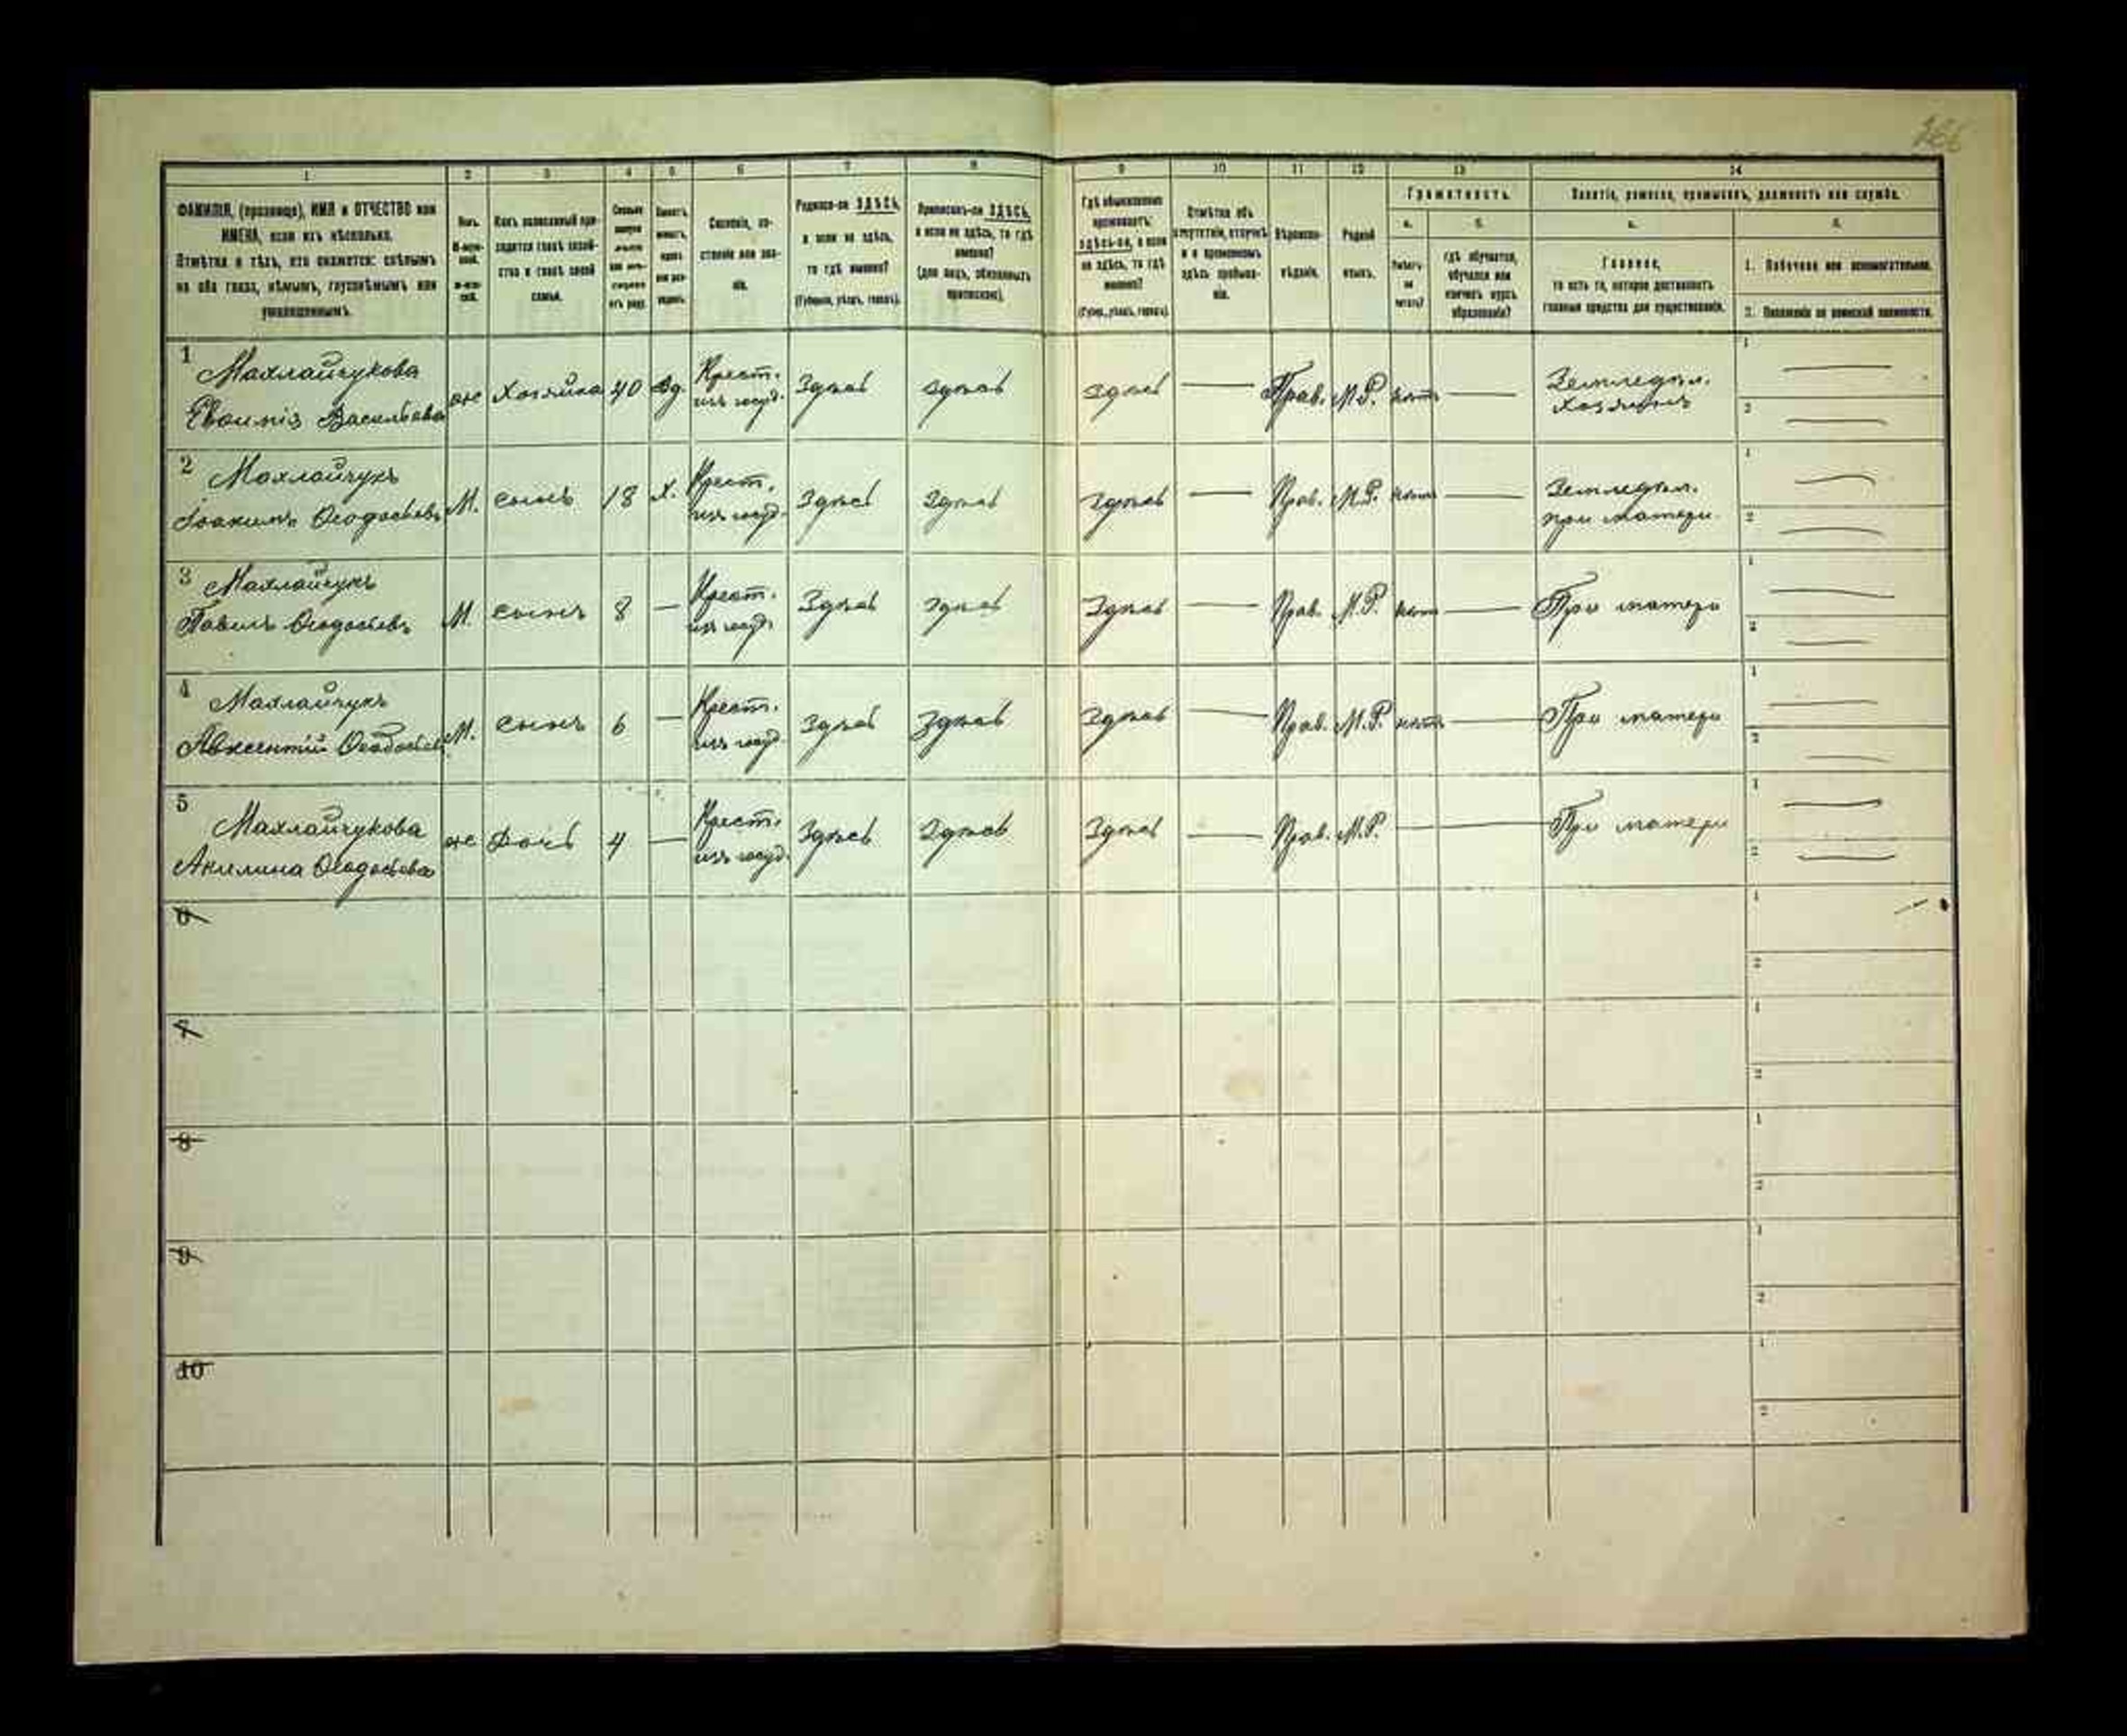 266
1 2 3 4 5 6 7 8 9 10 11 12 13 14
ФАМИЛІЯ, (прозвище), ИМЯ и ОТЧЕСТВО или
ИМЕНА, если ихъ нѣсколько.
Отмѣтка о тѣхъ, кто окажется: слѣпымъ
на оба глаза, нѣмымъ, глухонѣмымъ или
умалишеннымъ.
Полъ.
Какъ записанный при-
ходится главѣ хозяй-
ства и главѣ своей
семьи.
Сословіе, со-
стояніе или зва-
ніе.
Родился-ли ЗДѢСЬ,
а если не здѣсь,
то гдѣ именно?
(Губернія, уѣздъ, городъ).
Приписанъ-ли ЗДѢСЬ,
а если не здѣсь, то гдѣ
именно?
(для лицъ, обязанныхъ
припискою).
Гдѣ обыкновенно
проживаетъ:
здѣсь-ли, а если
не здѣсь, то гдѣ
именно?
(Губер., уѣздъ, городъ).
Отмѣтка объ
отсутствіи, отлучкѣ
и о временномъ
здѣсь пребыва-
ніи.
Вѣроиспо-
вѣданіе.
Родной
языкъ.
Грамотность.
а.
Умѣетъ-
ли
читать?
б.
гдѣ обучается,
обучался или
кончилъ курсъ
образованія?
Занятіе, ремесло, промыселъ, должность или служба.
а.
Главное,
то есть то, которое доставляетъ
главныя средства для существованія.
б.
1. Побочное или вспомогательное.
2. Положеніе по воинской повинности.
1 Махлайчукова
Васильева
ж Хозяйка 40 вд. Крест. Здѣсь Здѣсь Здѣсь — Прав. М.Р. нѣтъ — Земледѣл.
изъ госуд.
1 —
2 —
2 Махлайчукъ
Іоакимъ Ѳеодосіевъ
М. сынъ 18 х. Крест. Здѣсь Здѣсь Здѣсь — Прав. М.Р. нѣтъ — Земледѣл.
изъ госуд. при матери
1 —
2 —
3 Махлайчукъ
Павелъ Ѳеодосіевъ
М. сынъ 8 — Крест. Здѣсь Здѣсь Здѣсь — Прав. М.Р. нѣтъ — При матери
изъ госуд.
1 —
2 —
4 Махлайчукъ
Авксентій Ѳеодосіевъ
М. сынъ 6 — Крест. Здѣсь Здѣсь Здѣсь — Прав. М.Р. нѣтъ — При матери
изъ госуд.
1 —
2 —
5 Махлайчукова
Акилина Ѳеодосіева
ж Дочь 4 — Крест. Здѣсь Здѣсь Здѣсь — Прав. М.Р. — При матери
изъ госуд.
1 —
2 —
6
1
2
7
1
2
8
1
2
9
1
2
10
1
2